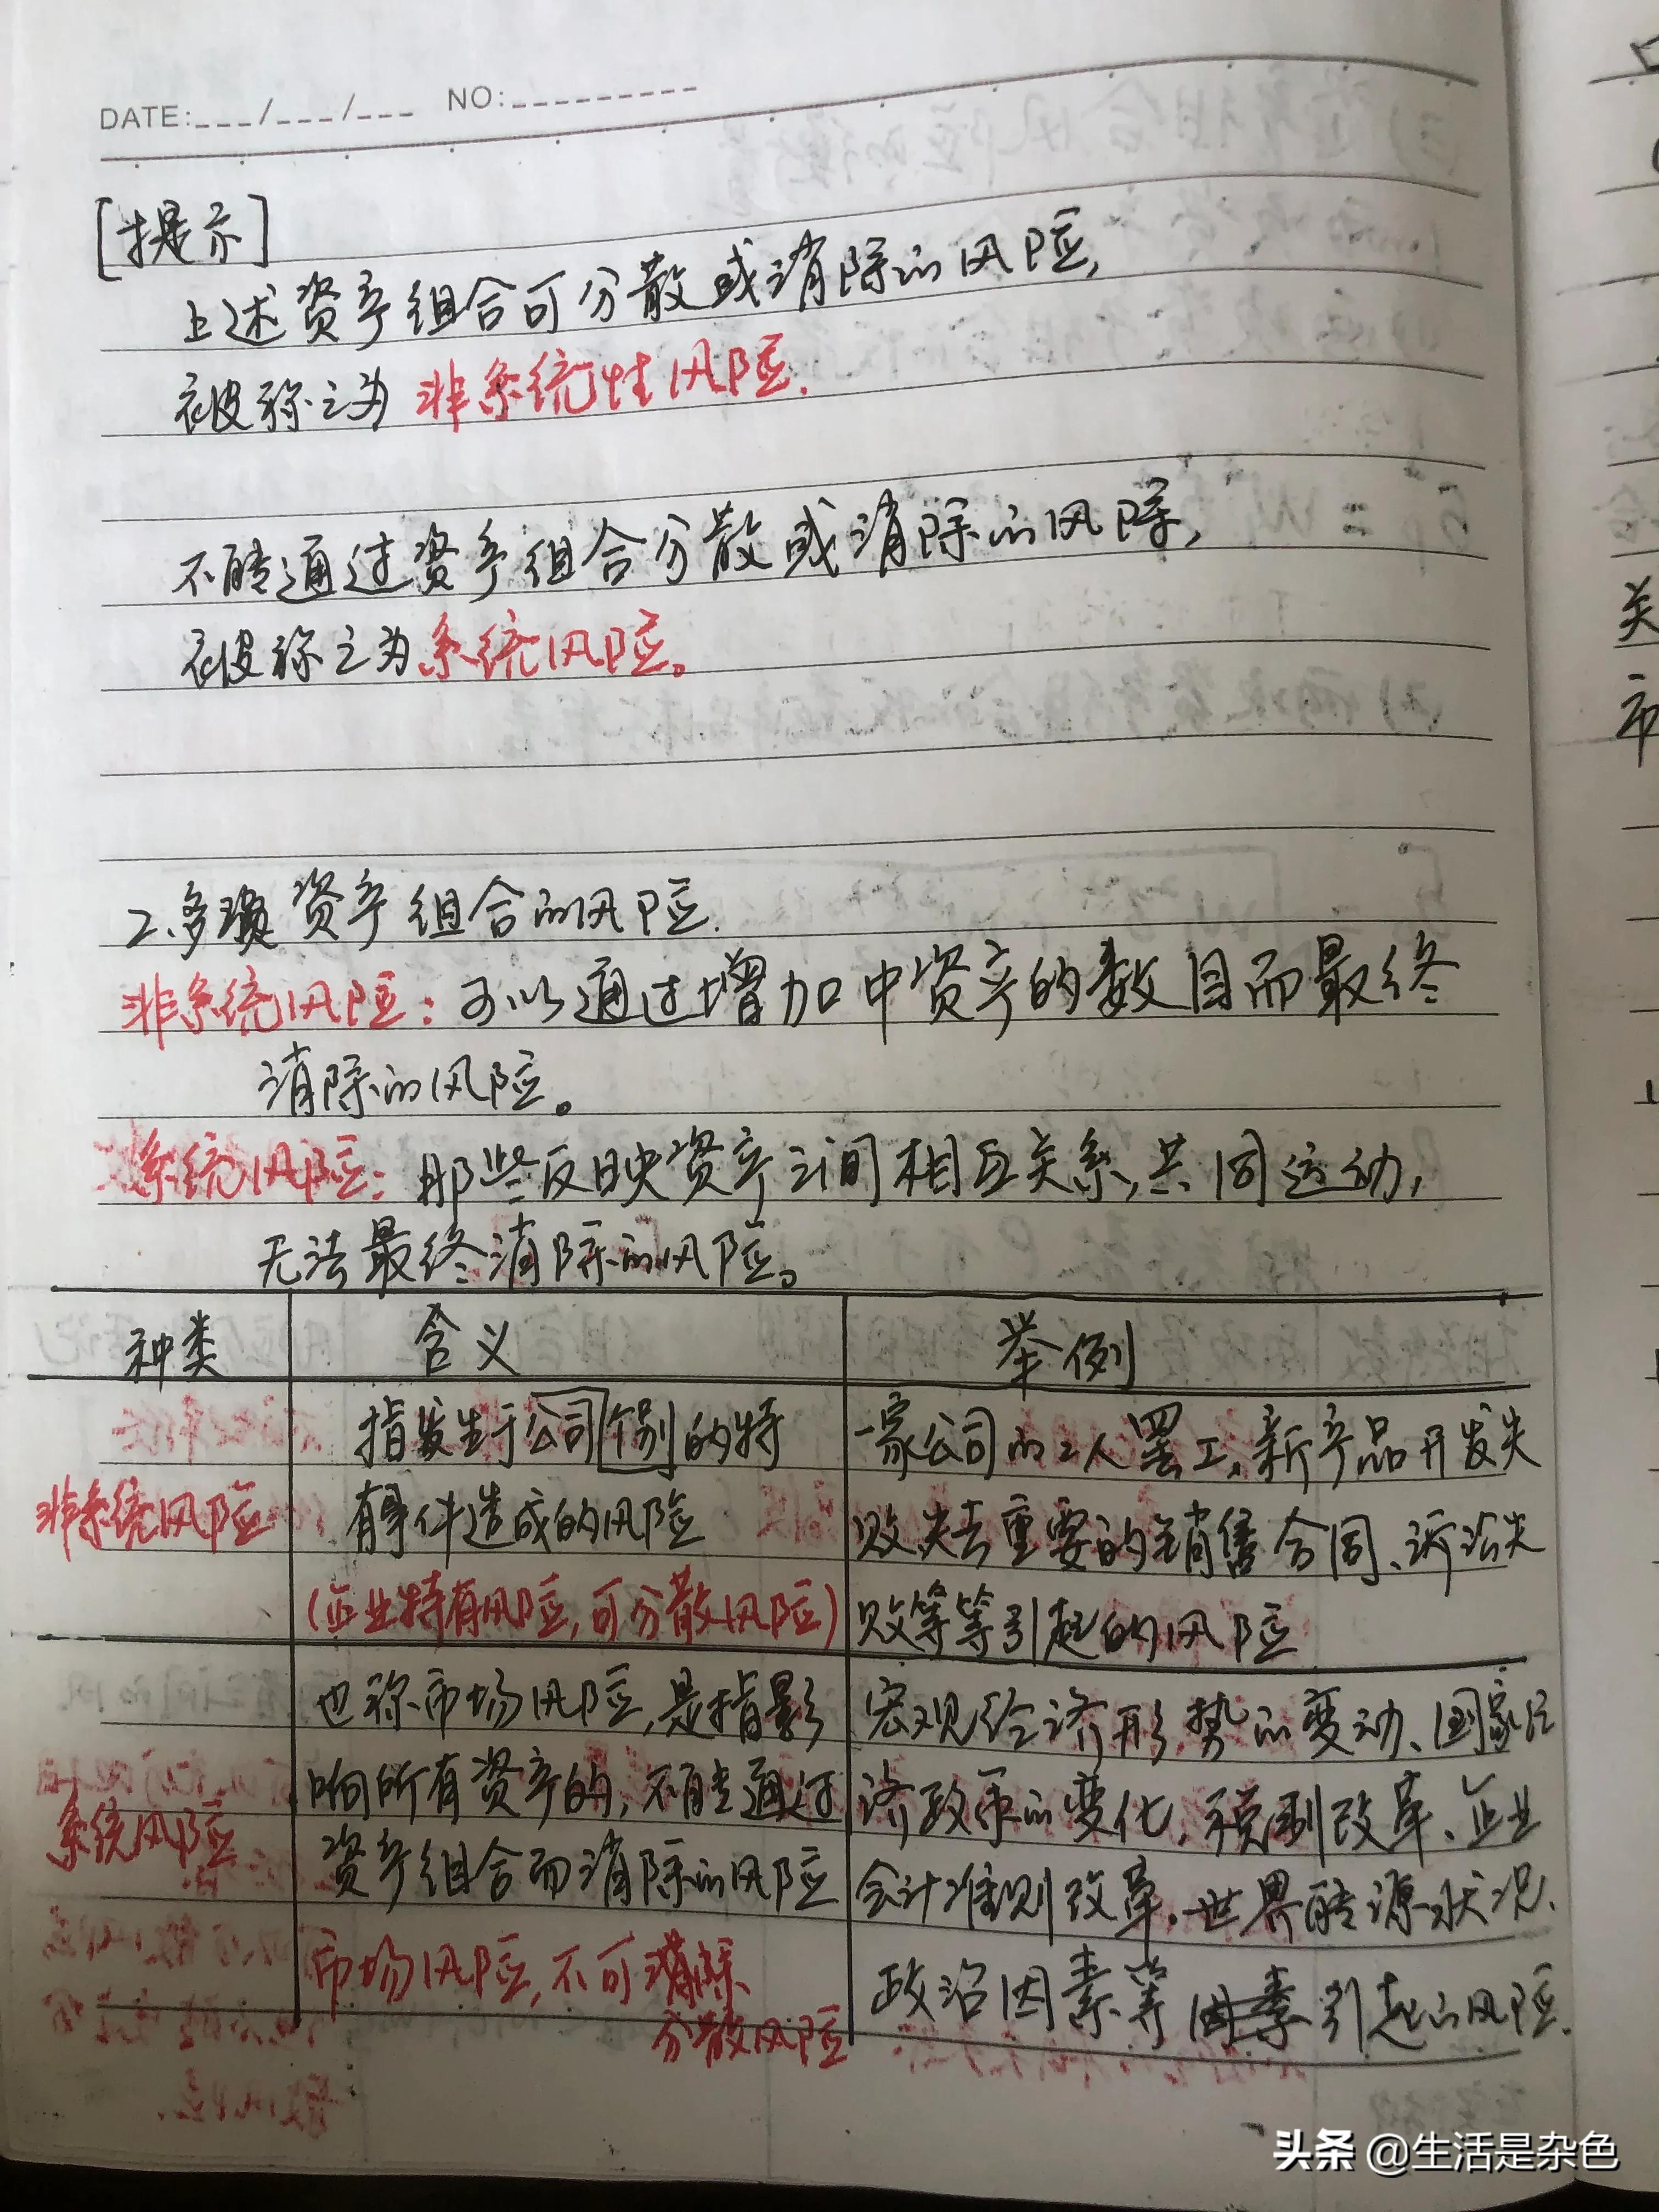 DATE:___/___/___ NO:_________
[提示]
上述资产组合可分散或消除的风险,
被称之为非系统性风险.
不能通过资产组合分散或消除的风险,
被称之为系统风险。
2、多项资产组合的风险.
非系统风险:可以通过增加中资产的数目而最终
消除的风险。
系统风险:那些反映资产之间相互关系,共同运动,
无法最终消除的风险。
种类 含义 举例
指发生于公司个别的特 一家公司的工人罢工、新产品开发失
非系统风险 有事件造成的风险 败失去重要的销售合同、诉讼失
(企业特有风险,可分散风险) 败等等引起的风险
也称市场风险,是指影 宏观经济形势的变动、国家经
响所有资产的,不能通过 济政策的变化,税制改革、企业
系统风险 资产组合而消除的风险 会计准则改革。世界能源状况、
市场风险,不可消除、 政治因素等因素引起的风险.
分散风险
关
市
头条 @生活是杂色